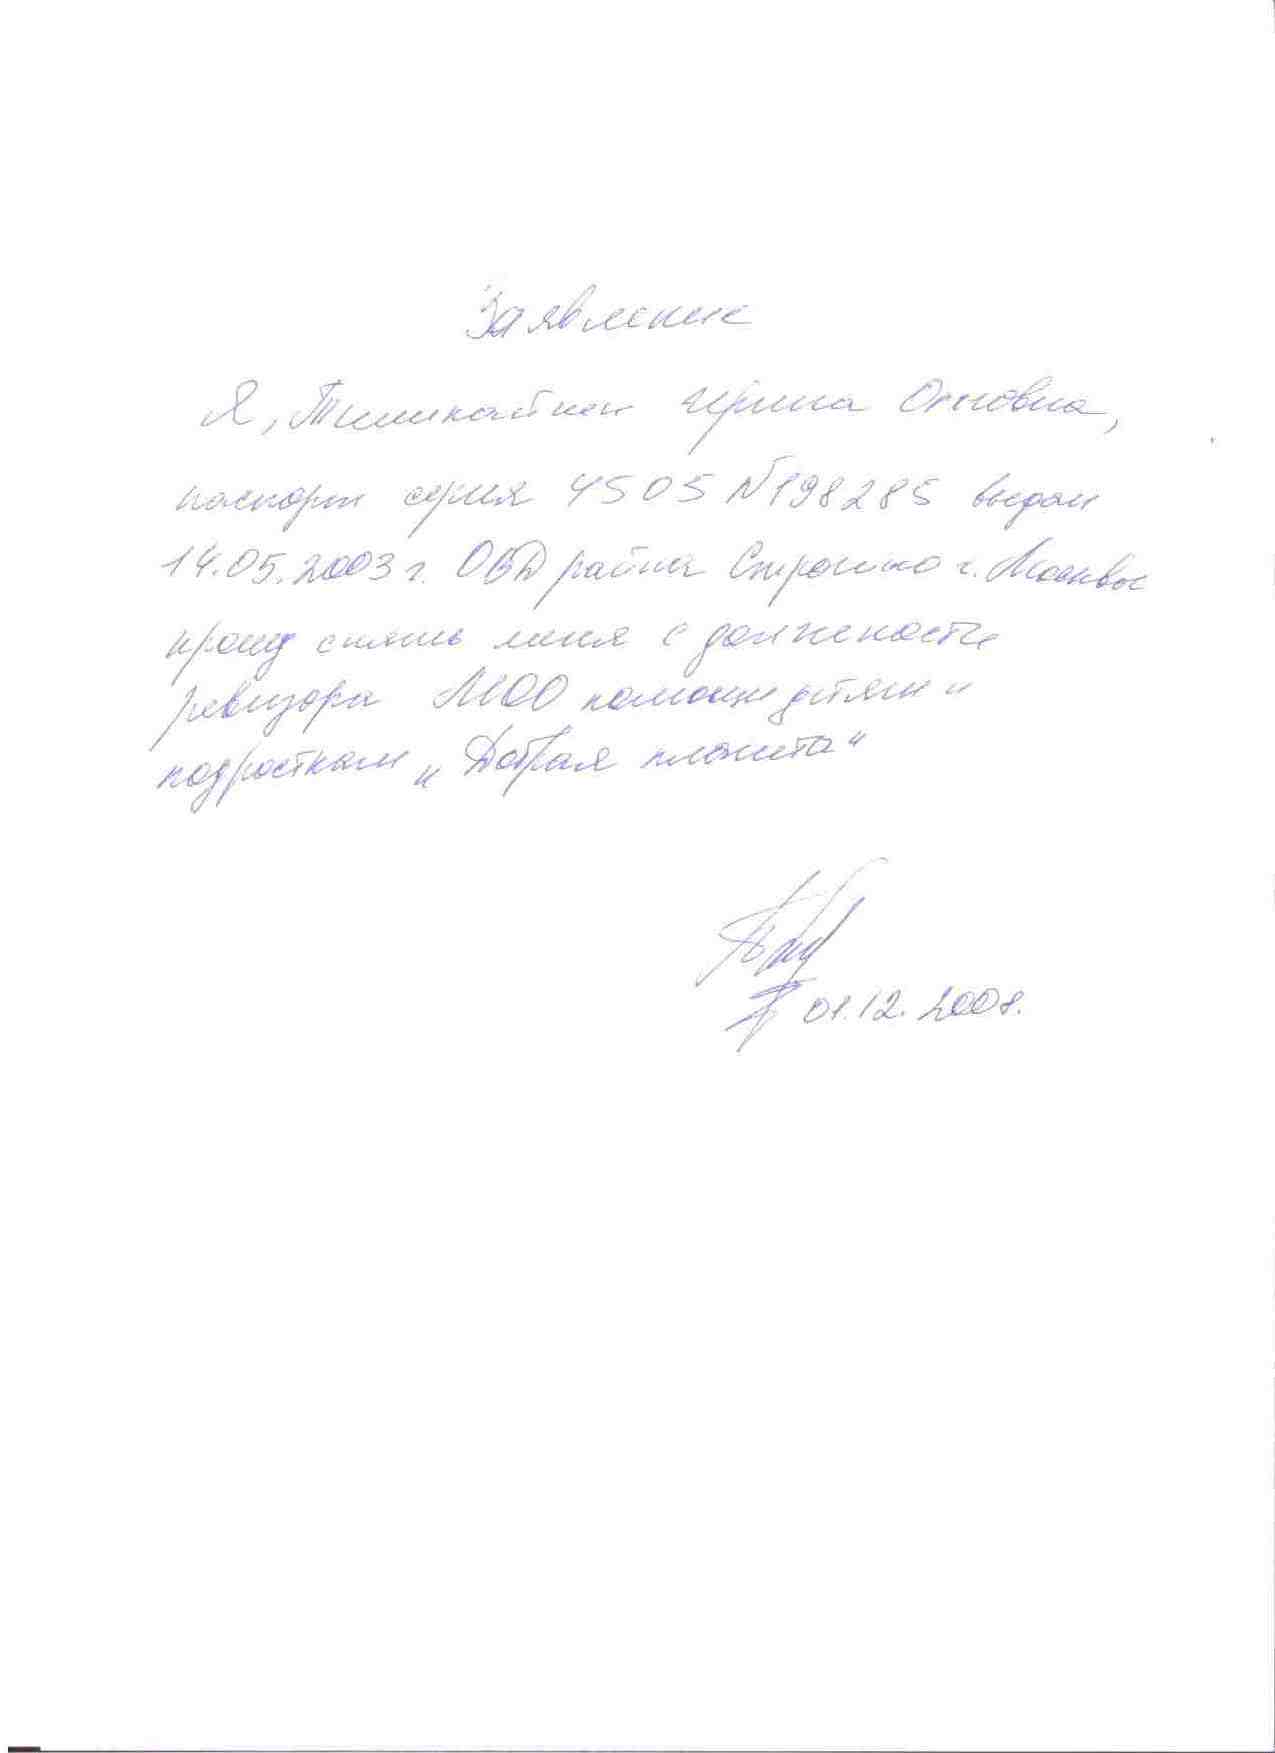 Заявление
Я, Тиликайнен Ирина Оттовна,
паспорт серия 4505 №198285 выдан
14.05.2003 г. ОВД района Строгино г. Москвы
прошу снять меня с должности
ревизора МОО помощи детям и
подросткам „Добрая планета“
01.12.2008.